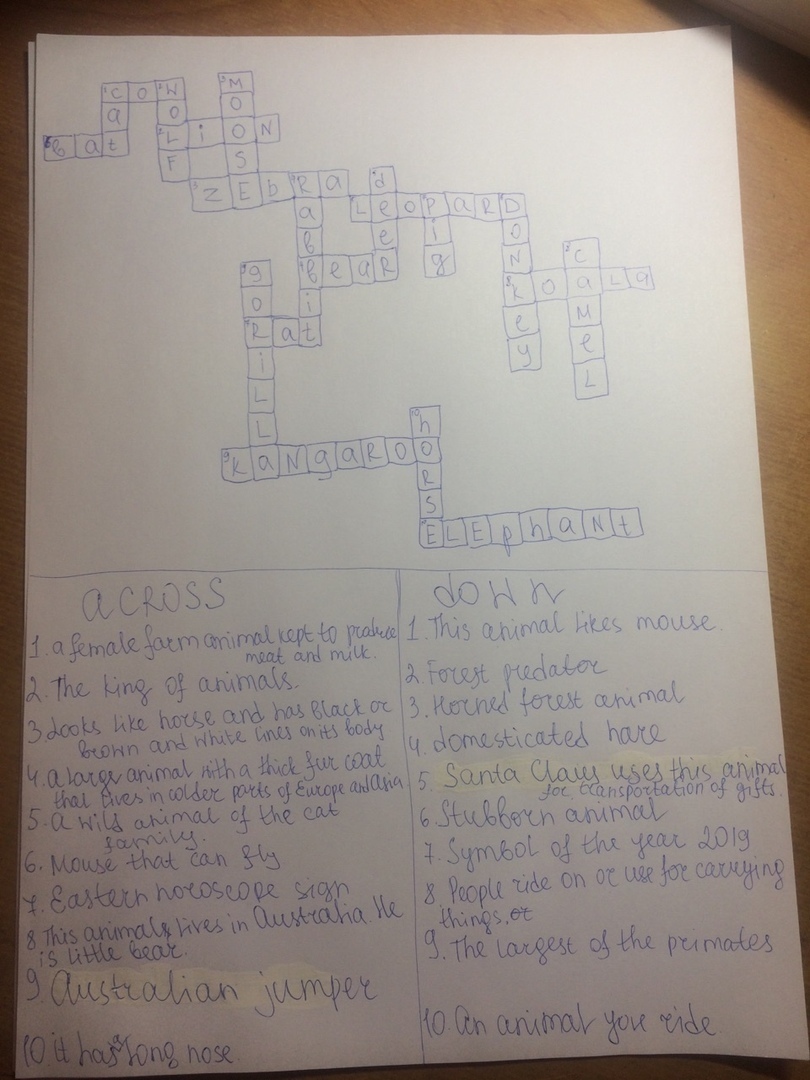 COW
MOOSE
WOLF
cat
bat
LiON
ZEbRa
Rabbit
deeR
LeOPaRD
Pig
DONKey
bear
caMeL
KOaLa
gORiLLa
Rat
KaNgaROO
hORSE
ELEphaNt
aCROSS
1. a female farm animal kept to produce
meat and milk.
2. The king of animals.
3 Looks like horse and has black or
brown and white lines on its body
4. a large animal with a thick fur coat
that lives in colder parts of Europe and Asia
5. a wild animal of the cat
family.
6. Mouse that can fly
7. Eastern horoscope sign
8 This animal lives in Australia. He
is little bear.
9. Australian jumper
10. it has long nose.
dOWN
1. This animal likes mouse.
2. Forest predator
3. Horned forest animal
4. domesticated hare
5. Santa Claus uses this animal
for transportation of gifts.
6. Stubborn animal
7. Symbol of the year 2019
8 People ride on or use for carrying
things.
9. The largest of the primates
10. An animal you ride